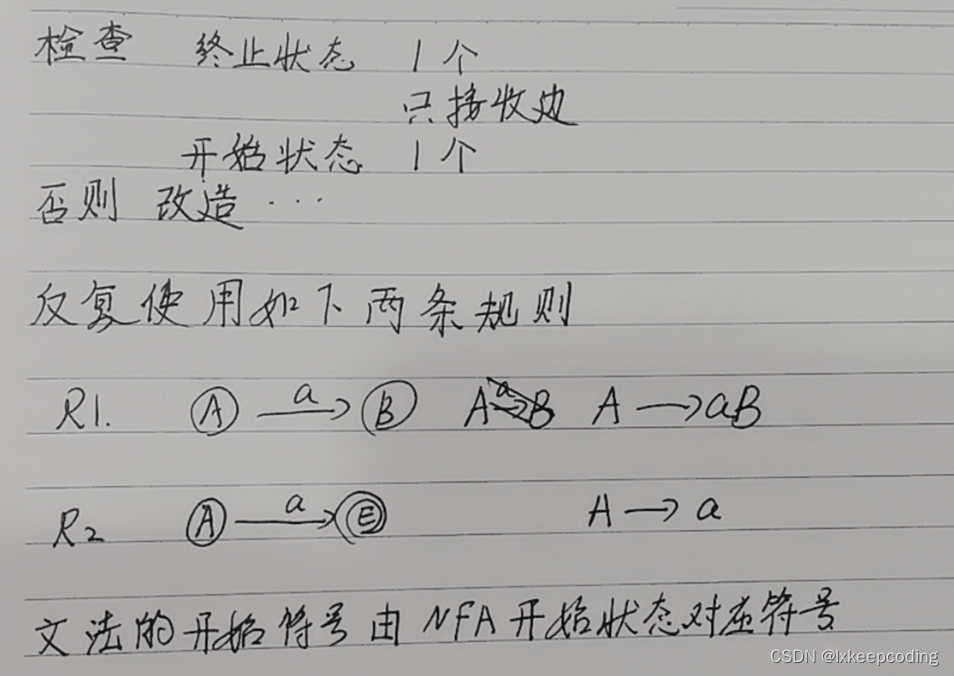 检查 终止状态 1个
只接收边
开始状态 1个
否则 改造 ···
反复使用如下两条规则
R1. A a→ B A a→ B A → aB
R2 A a→ E A → a
文法的开始符号由NFA开始状态对应符号
CSDN @lxkeepcoding